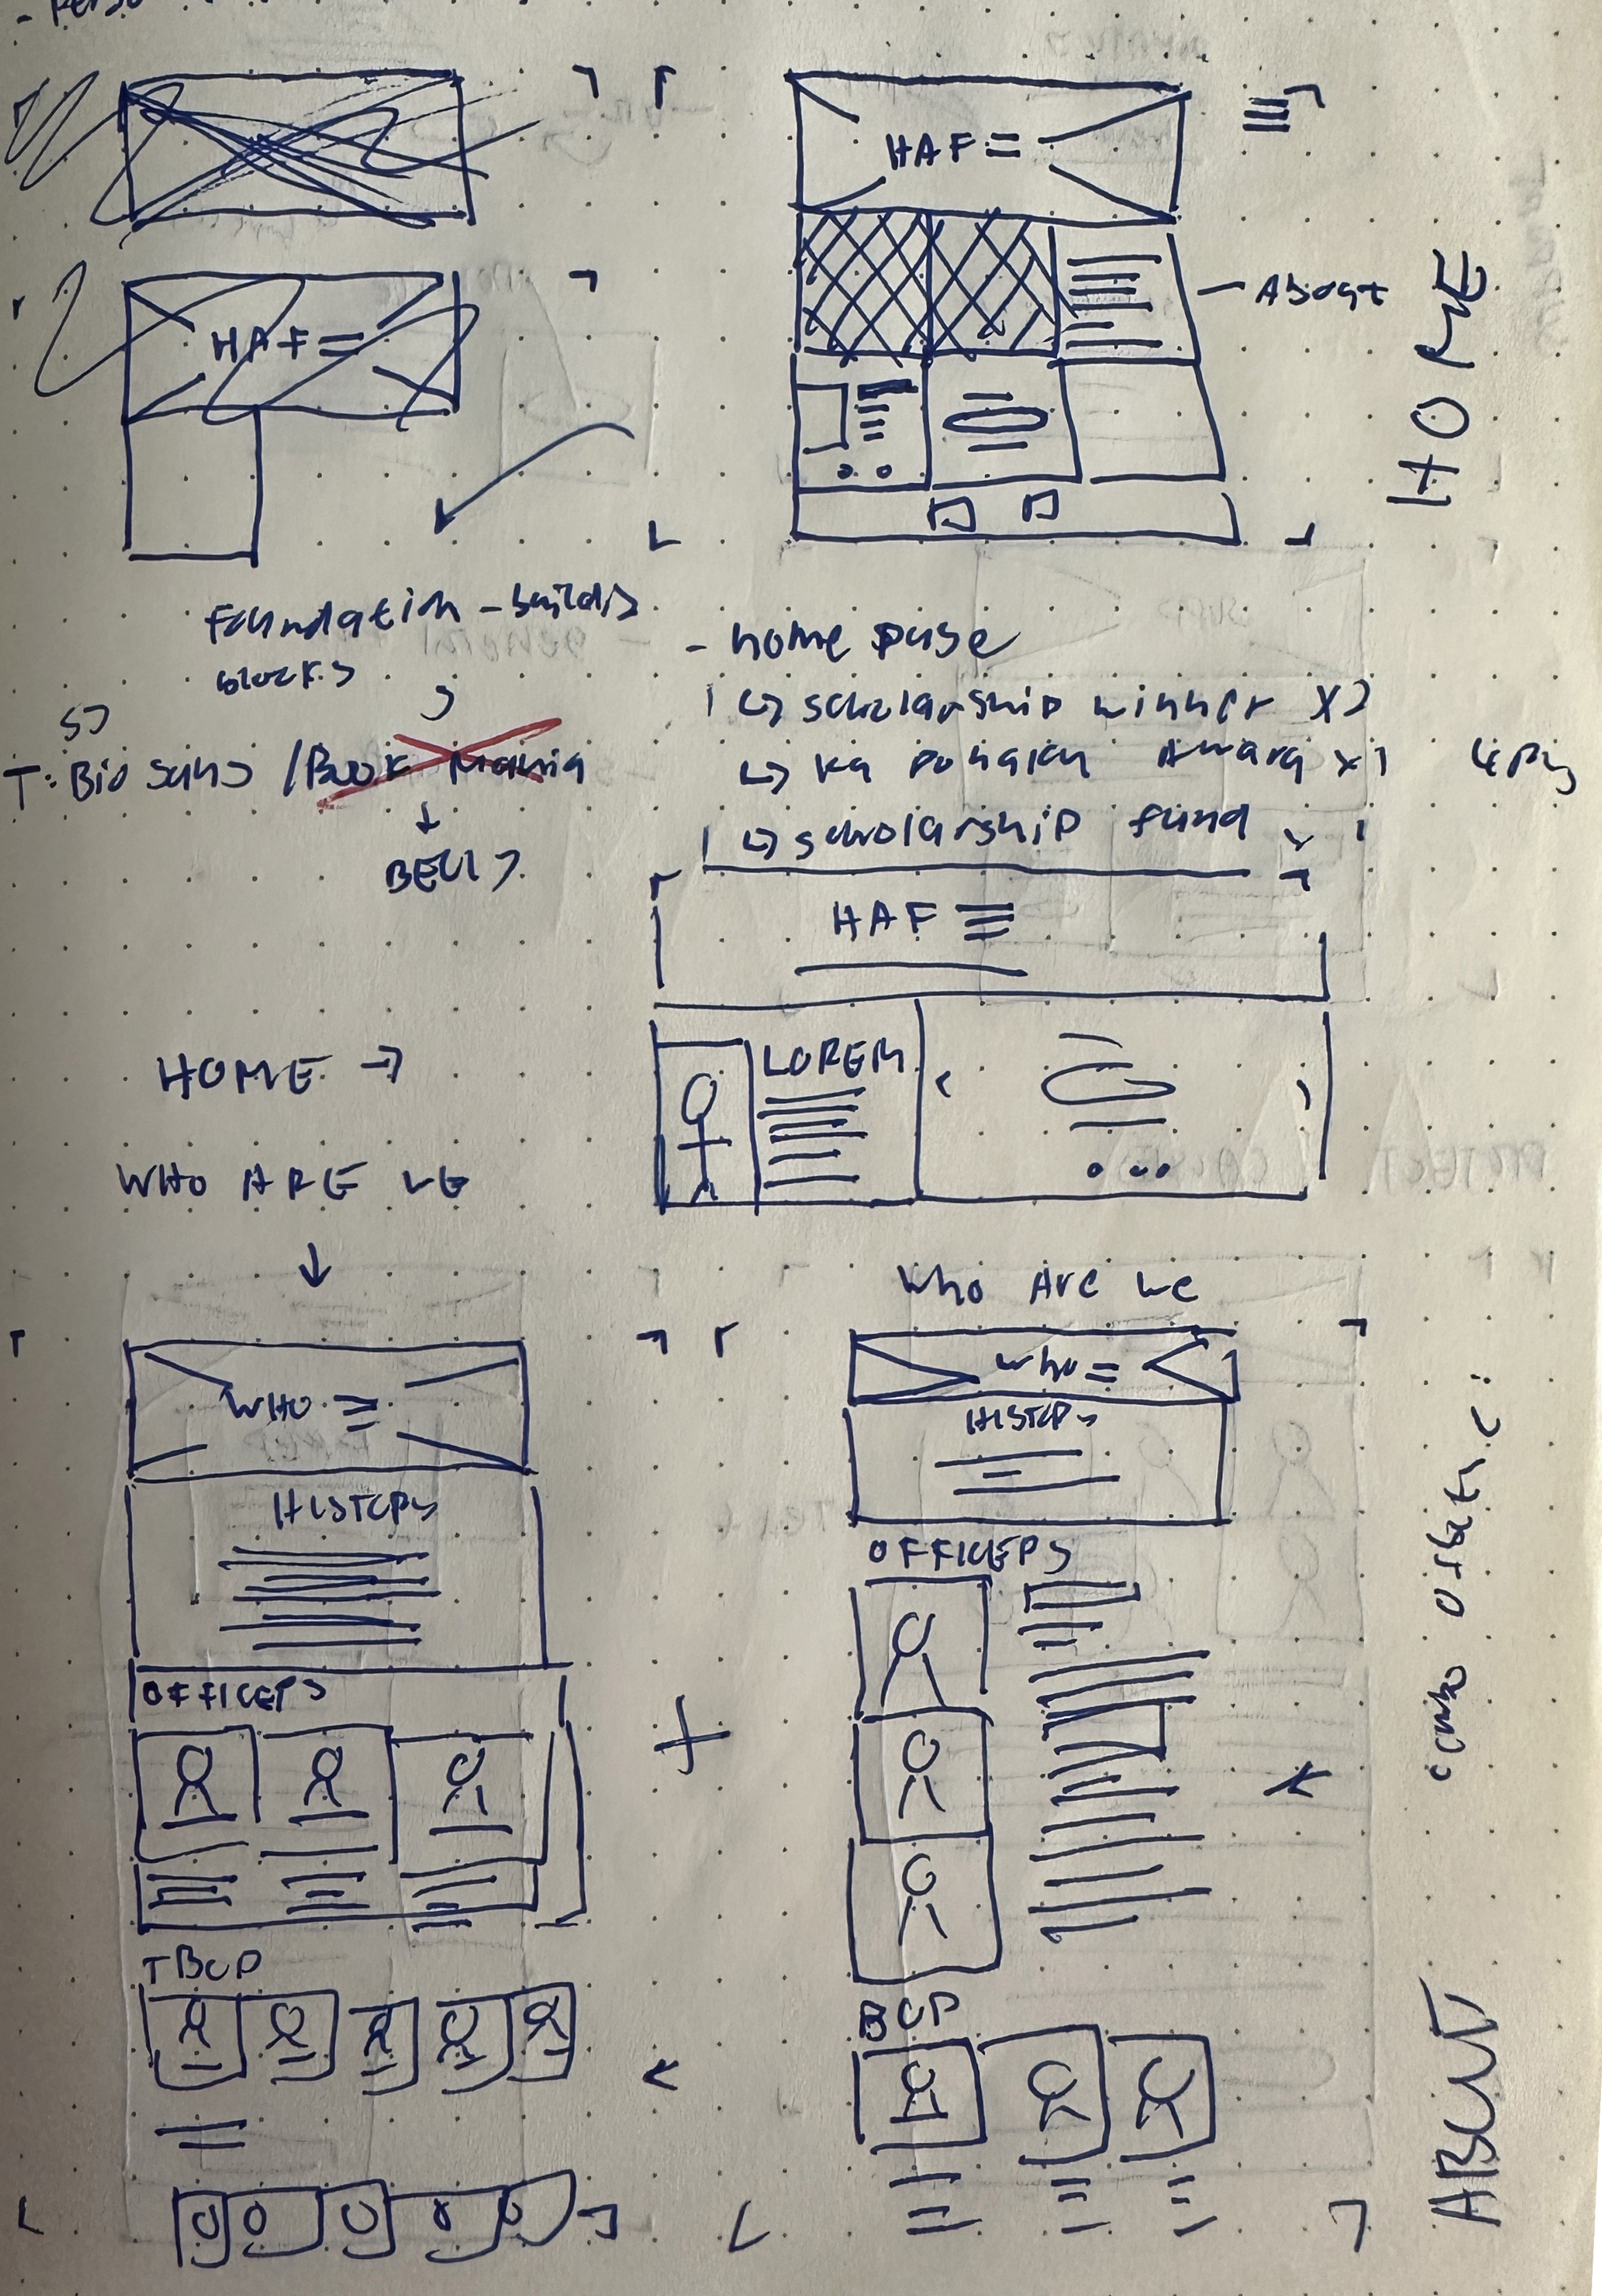 HAF
About
HOME
HAF
Foundation - builds
blocks
- home page
↳ scholarship winner x2
↳ Ka Award x1
↳ scholarship fund
T: Bio Sans / Book Mania
HAF
HOME →
LOREM
WHO ARE WE
Who Are We
WHO
Who
HISTORY
HISTORY
OFFICERS
OFFICERS
combo of both
BOD
ABOUT